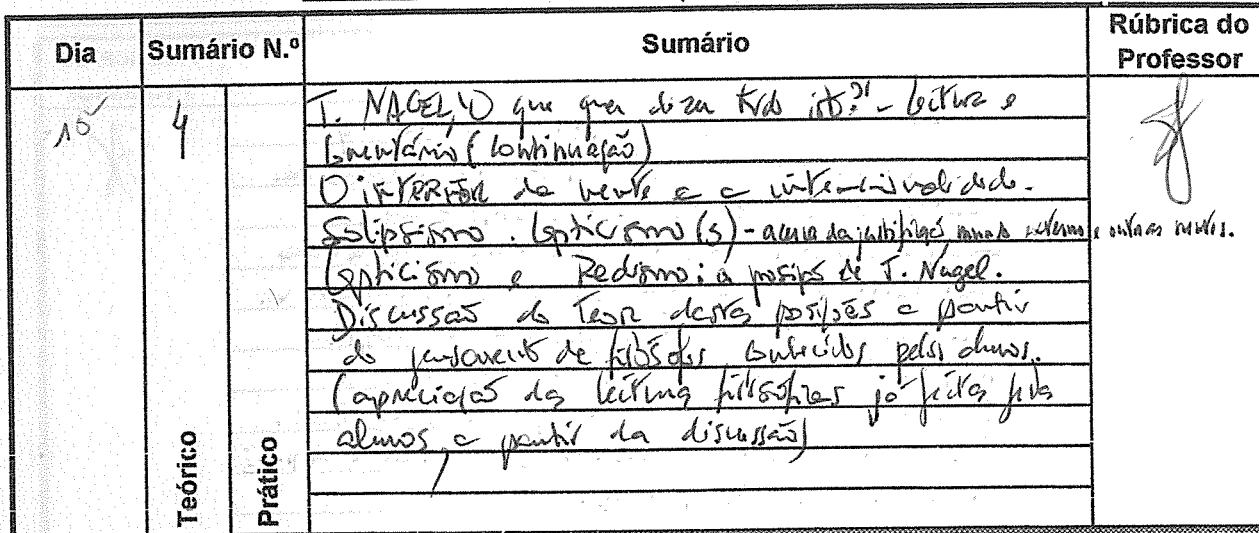 Dia Sumário N.º Sumário Rúbrica do Professor
15 4 T. NAGEL, "O que quer dizer tudo isto?" - Leitura e
Comentário (continuação)
O interior da mente e a
Solipsismo. Cepticismo(s) - acerca da justificação mundo externo e outras mentes.
Cepticismo e Realismo: a posição de T. Nagel.
Discussão do teor destas posições a partir
do pensamento de filósofos conhecidos pelos alunos.
(apreciação das leituras filosóficas já feitas pelos
alunos, a partir da discussão)
Teórico
Prático